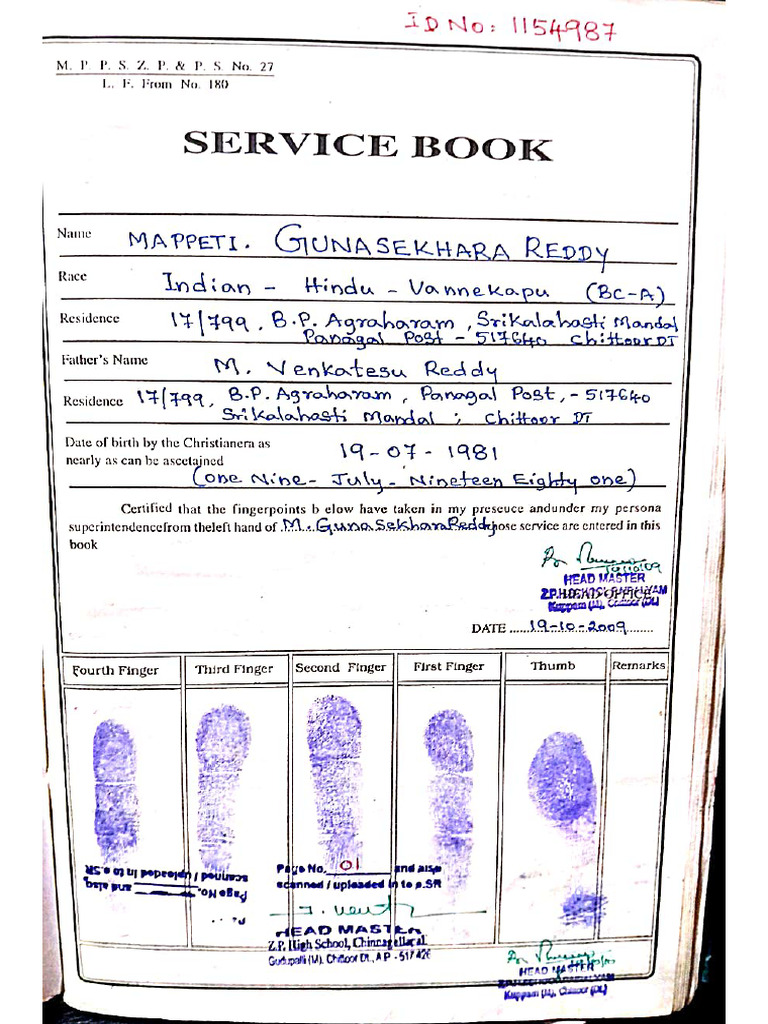 ID No: 1154987
M. P. P. S. Z. P. & P. S. No. 27
L. F. From No. 180
SERVICE BOOK
Name MAPPETI. GUNASEKHARA REDDY
Race Indian - Hindu - Vannekapu (BC-A)
Residence 17/799, B.P. Agraharam, Srikalahasti Mandal
Panagal Post - 517640 Chittoor DT
Father's Name M. Venkatesu Reddy
Residence 17/799, B.P. Agraharam, Panagal Post, - 517640
Srikalahasti Mandal ; Chittoor DT
Date of birth by the Christianera as
nearly as can be ascetained
19-07-1981
(one Nine - July - Nineteen Eighty one)
Certified that the fingerpoints b elow have taken in my preseuce andunder my persona
superintendencefrom theleft hand of M. GunaSekhara Reddy hose service are entered in this
book
HEAD MASTER
Kuppam (M), Chittoor (Dt.)
DATE ......19-10-2009......
Fourth Finger Third Finger Second Finger First Finger Thumb Remarks
Page No. 01 and also
scanned / uploaded in to e.SR
Page No. and also
scanned / uploaded in to e.SR
HEAD MASTER
Z.P. High School, Chinnagellapal
Gudupalli (M), Chittoor Dt., A.P - 517 426
HEAD MASTER
Kuppam (M), Chittoor (Dt.)